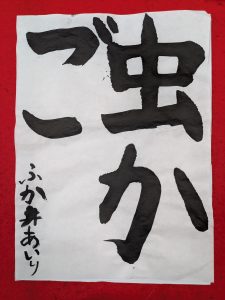 虫か
ご
ふか井あいり